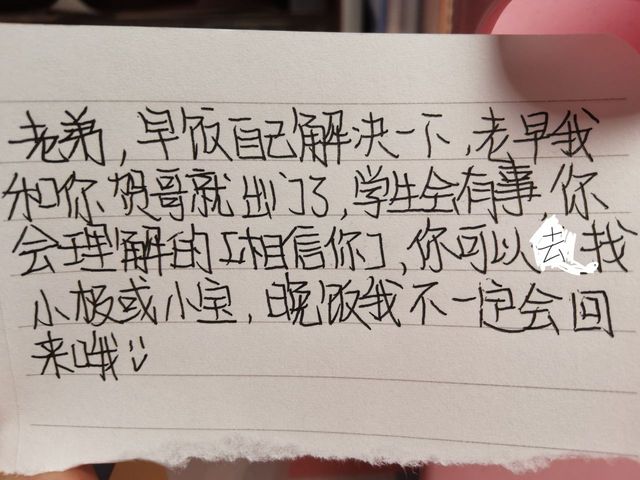 老弟，早饭自己解决一下，老早我
和你贺哥就出门了，学生会有事，你
会理解的［相信你］，你可以去找
小极或小宝，晚饭我不一定会回
来哦